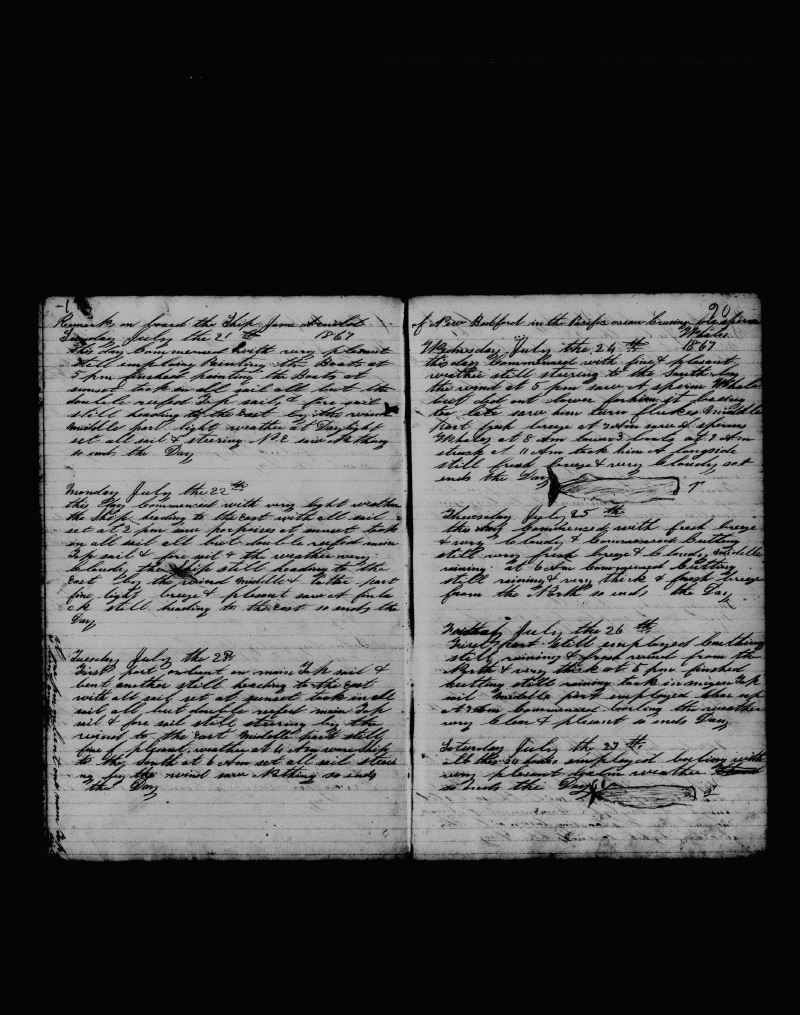 Remark on board the Ship James Arnold
Sunday July the 21th 1867
this day Commenced with very plesant
still employing Painting the Boats at
5 pm finshed painting the Boats at
sunset took in all sail all but the
double reefed Top sails & fore sail
still heading to the East by the wind
middle part light weather at Daylight
set all sail & steering N.E saw Nthing
so ends the Day
Monday July the 22th
this Day Commenced with very light weather
the Ship heading to the East with all sail
set at 2 pm saw porpoises at sunset took
in all sail all but double reefed main
Top sail & fore sail & the weather very
Cloudy the Ship still heading to the
East by the wind middle & latter part
fine light breeze & plesant saw A finba
ck still heading to the East so ends the
Day
Tuesday July the 23
First part on main Top sail &
bent another still heading to the East
with all sail set at sunset took in all
sail all but double reefed main Top
sail & fore sail still steering by the
wind to the East middle part still
fine & plesant weather at 4 Am wore ship
to the South at 6 Am set all sail steeri
ng by the wind saw Nthing so ends
the Day
20
of New Bedford in the Pacific ocean Cruising for sperm
Whales
Wednesday July the 24th 1867
this day Commenced with fine & plesant
weather still steering to the South by
the wind at 5 pm saw A sperm Whale
but did not lower for him it being
to late saw him turn flukes middle
part fresh breeze at 7 Am saw sperm
Whales at 8 Am lower 3 boats at 9 Am
struck at 11 Am took him A longside
still fresh breeze & very cloudy so
ends the Day
Thuesday July 25th
this day Commenced with fresh breeze
& very Cloudy & Commenced Cutting
still very fresh breeze & Cloudy middle
raining at 6 Am Commenced Cutting
still raining & very thick & fresh breeze
from the North so ends the Day
July the 26th
First part still employed Cutting
still raining & fresh wind from the
North & very thick at 5 pm finshed
Cutting still raining took in mizen Top
sail middle part employed Clear up
at Am Commenced boiling the weather
very Clear & plesant so ends Day
Saturday July the 27th
All this 24 hours employed boiling with
very plesant Calm weather
so ends the Day